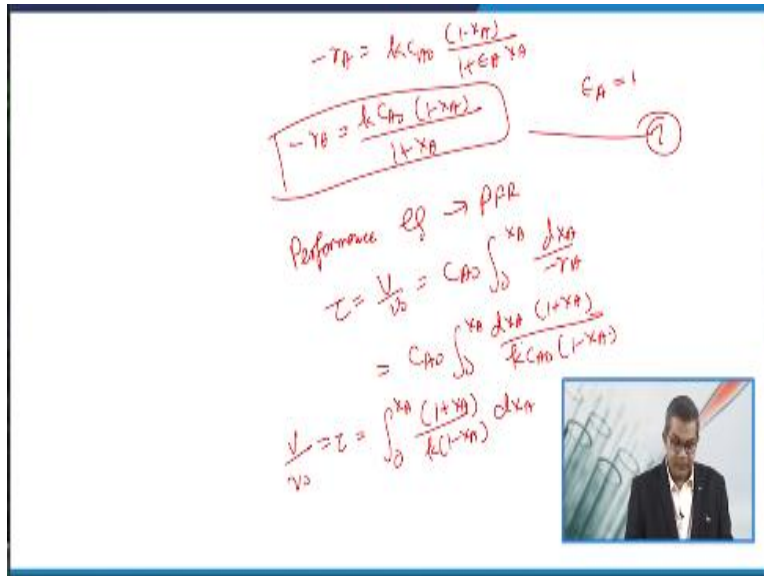 -rA = kCA0 (1-XA) / 1+εA XA
εA = 1
-rA = kCA0 (1-XA) / 1+XA
2
Performance eq → PFR
τ = V/v0 = CA0 ∫0^XA dXA / -rA
= CA0 ∫0^XA dXA (1+XA) / kCA0 (1-XA)
V/v0 = τ = ∫0^XA (1+XA) / k(1-XA) dXA